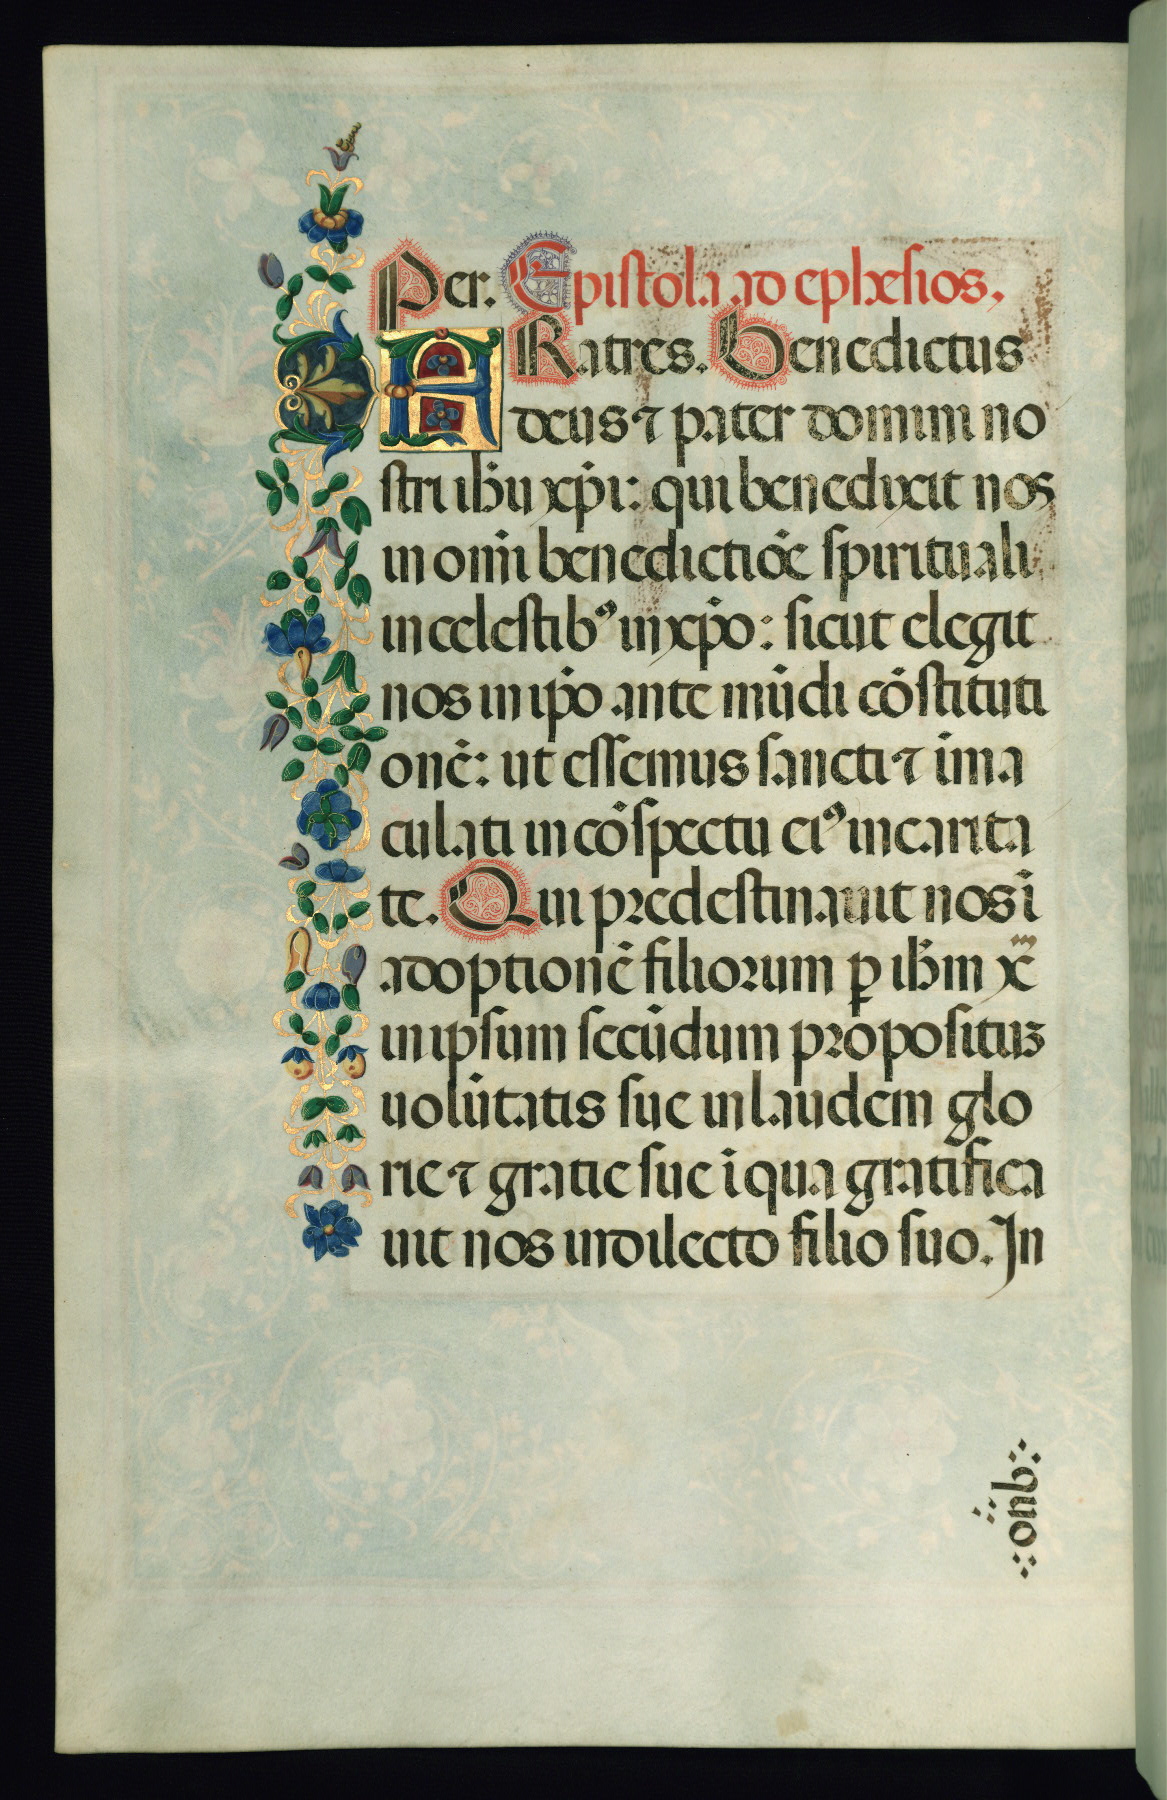 Per. Epistola ad ephesios.
FRatres. Benedictus
deus ⁊ pater domini no
stri ihu xp̄i: qui benedixit nos
in om̄i benedictiōe spirituali
in celestibꝰ in xp̄o: sicut elegit
nos in ip̄o ante mūdi cōstituti
onē: ut essemus sancti ⁊ ima
culati in cōspectu eiꝰ in carita
te. Qui predestinauit nos ī
adoptionē filiorum ꝑ ihm xm̄
in ipsum secūdum proposituꝫ
uolūtatis sue in laudem glo
rie ⁊ gratie sue ī qua gratifica
uit nos in dilecto filio suo. In
quo